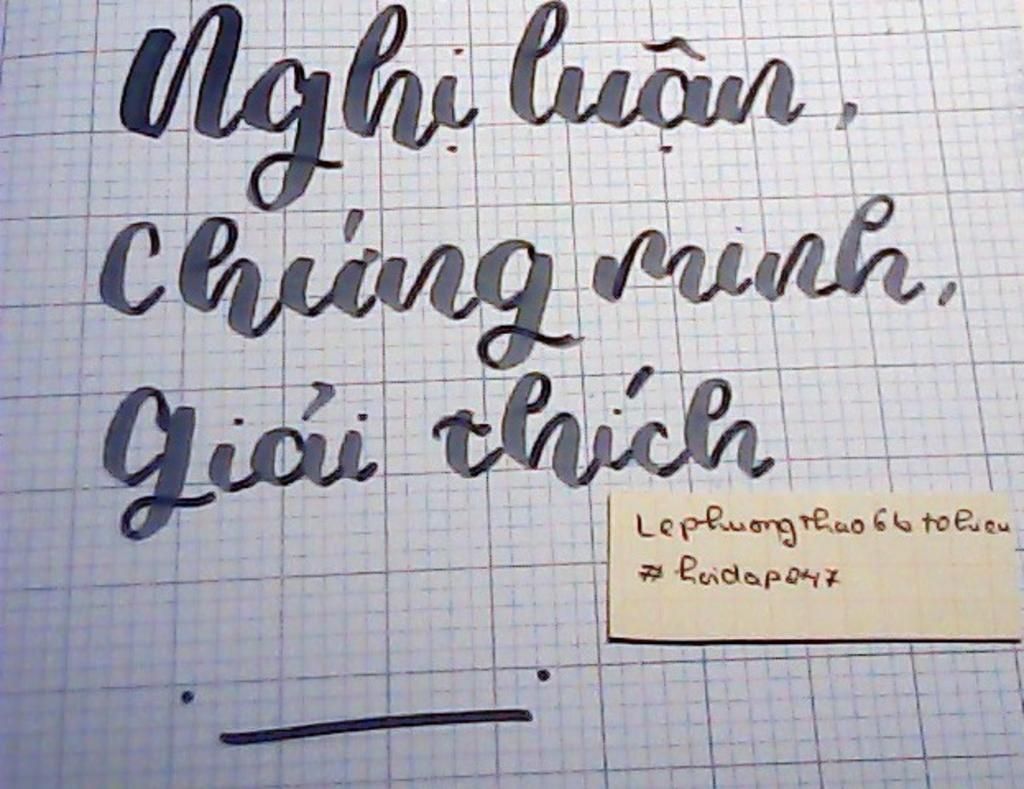 Nghị luận,
Chứng minh,
Giải thích
Lephuongthao6btohieu
#hoidap247